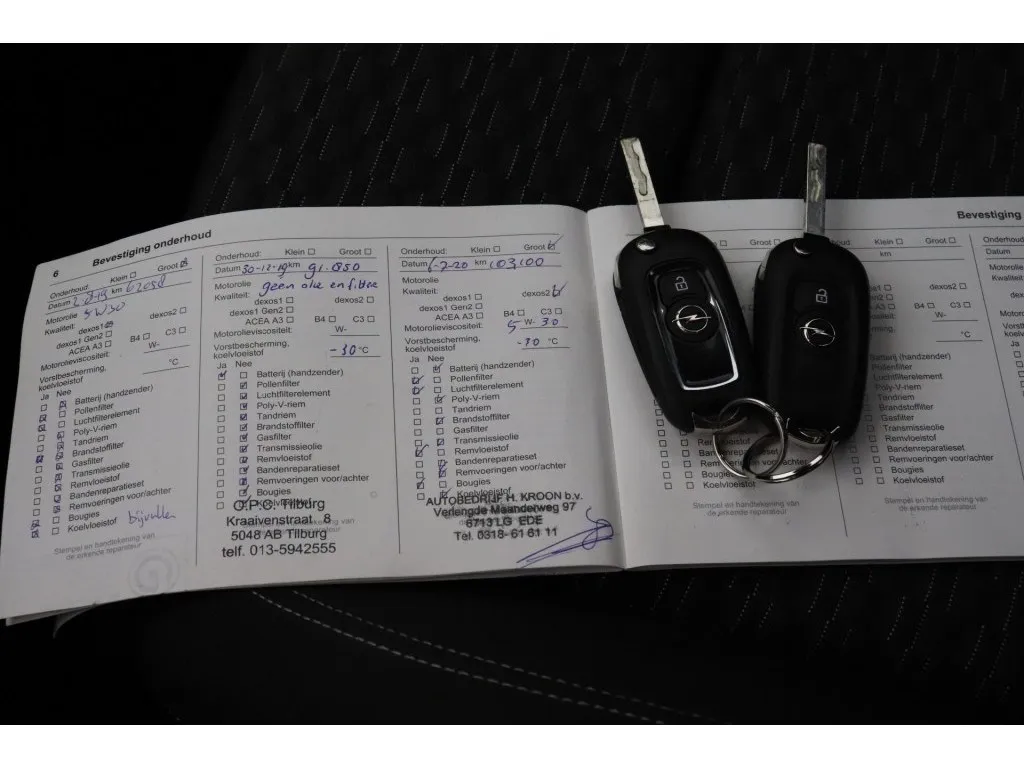 6 Bevestiging onderhoud
Onderhoud: Klein Groot
Datum km
Motorolie 5W30
Kwaliteit: dexos1 dexos2
dexos1 Gen2
ACEA A3 B4 C3
Motorolieviscositeit: W-
Vorstbescherming,
koelvloeistof °C
Ja Nee
Batterij (handzender)
Pollenfilter
Luchtfilterelement
Poly-V-riem
Tandriem
Brandstoffilter
Gasfilter
Transmissieolie
Remvloeistof
Bandenreparatieset
Remvoeringen voor/achter
Bougies
Koelvloeistof bijvullen
Stempel en handtekening van
de erkende reparateur
Onderhoud: Klein Groot
Datum 30-12-19 km 91.850
Motorolie geen olie en filtre
Kwaliteit:
dexos1 dexos2
dexos1 Gen2
ACEA A3 B4 C3
Motorolieviscositeit: W-
Vorstbescherming,
koelvloeistof -30 °C
Ja Nee
Batterij (handzender)
Pollenfilter
Luchtfilterelement
Poly-V-riem
Tandriem
Brandstoffilter
Gasfilter
Transmissieolie
Remvloeistof
Bandenreparatieset
Remvoeringen voor/achter
Bougies
Koelvloeistof
O.P.C. Tilburg
Kraaivenstraat 8
5048 AB Tilburg
telf. 013-5942555
Onderhoud: Klein Groot
Datum km 103,100
Motorolie
Kwaliteit:
dexos1 dexos2
dexos1 Gen2
ACEA A3 B4 C3
Motorolieviscositeit: 5 W- 30
Vorstbescherming,
koelvloeistof °C
Ja Nee
Batterij (handzender)
Pollenfilter
Luchtfilterelement
Poly-V-riem
Tandriem
Brandstoffilter
Gasfilter
Transmissieolie
Remvloeistof
Bandenreparatieset
Remvoeringen voor/achter
Bougies
Koelvloeistof
AUTOBEDRIJF H. KROON b.v.
Verlengde Maanderweg 97
6713 LG EDE
Tel. 0318-61 61 11
Remvloeistof
Bandenreparatieset
Remvoeringen voor/achter
Bougies
Koelvloeistof
Stempel en handtekening van
de erkende reparateur
Bevestiging
Klein Groot
km
W-
°C
Batterij (handzender)
Pollenfilter
Luchtfilterelement
Poly-V-riem
Tandriem
Brandstoffilter
Gasfilter
Transmissieolie
Remvloeistof
Bandenreparatieset
Remvoeringen voor/achter
Bougies
Koelvloeistof
Stempel en handtekening van
de erkende reparateur
Onderhoud:
Datum
Motorolie
Kwaliteit:
Ja